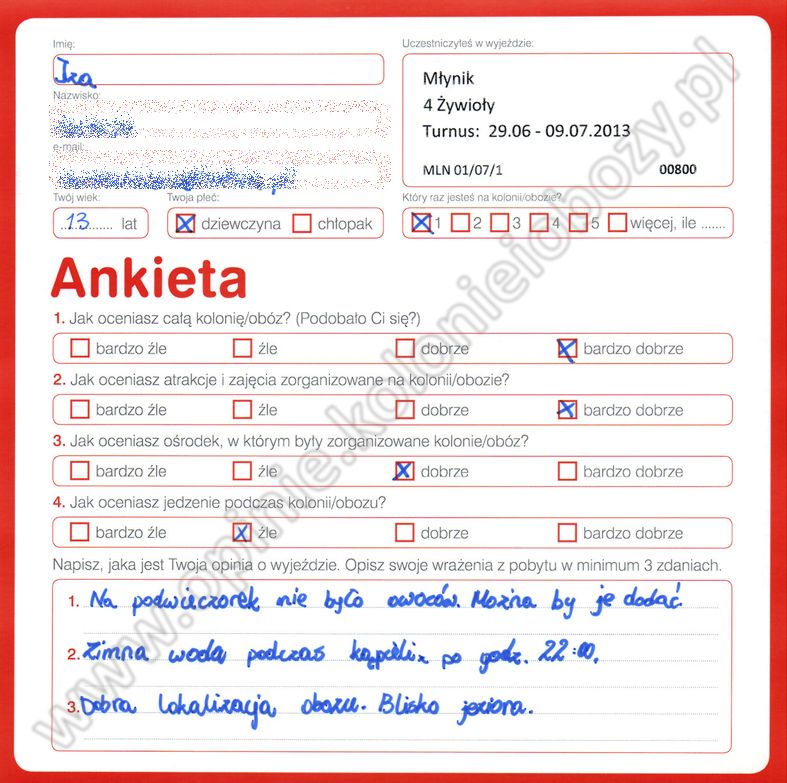 Imię:
Uczestniczyłeś w wyjeździe:
Iza
Młynik
4 Żywioły
Turnus: 29.06 - 09.07.2013
MLN 01/07/1 00800
Nazwisko:
e-mail:
Twój wiek: Twoja płeć: Który raz jesteś na kolonii/obozie?
13 lat dziewczyna chłopak 1 2 3 4 5 więcej, ile .......
Ankieta
1. Jak oceniasz całą kolonię/obóz? (Podobało Ci się?)
bardzo źle źle dobrze bardzo dobrze
2. Jak oceniasz atrakcje i zajęcia zorganizowane na kolonii/obozie?
bardzo źle źle dobrze bardzo dobrze
3. Jak oceniasz ośrodek, w którym były zorganizowane kolonie/obóz?
bardzo źle źle dobrze bardzo dobrze
4. Jak oceniasz jedzenie podczas kolonii/obozu?
bardzo źle źle dobrze bardzo dobrze
Napisz, jaka jest Twoja opinia o wyjeździe. Opisz swoje wrażenia z pobytu w minimum 3 zdaniach.
1. Na podwieczorek nie było owoców. Można by je dodać.
2. Zimna woda podczas kąpieli po godz. 22:00.
3. Dobra lokalizacja obozu. Blisko jeziora.
www.opinie.kolonieiobozy.pl